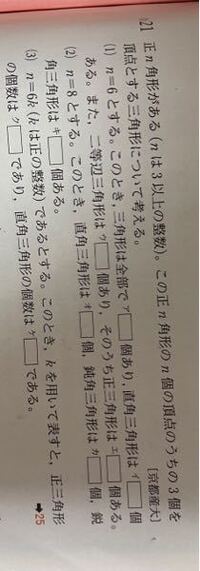 121 正n角形がある(nは3以上の整数)。この正n角形のn個の頂点のうちの3個を
頂点とする三角形について考える。 [京都産大]
(1) n=6とする。このとき，三角形は全部でア□個あり，直角三角形はイ□個
ある。また，二等辺三角形はウ□個あり，そのうち正三角形はエ□個ある。
(2) n=8とする。このとき，直角三角形はオ□個，鈍角三角形はカ□個，鋭
角三角形はキ□個ある。
(3) n=6k(kは正の整数)であるとする。このとき，kを用いて表すと，正三角形
の個数はク□であり，直角三角形の個数はケ□である。 ➡25